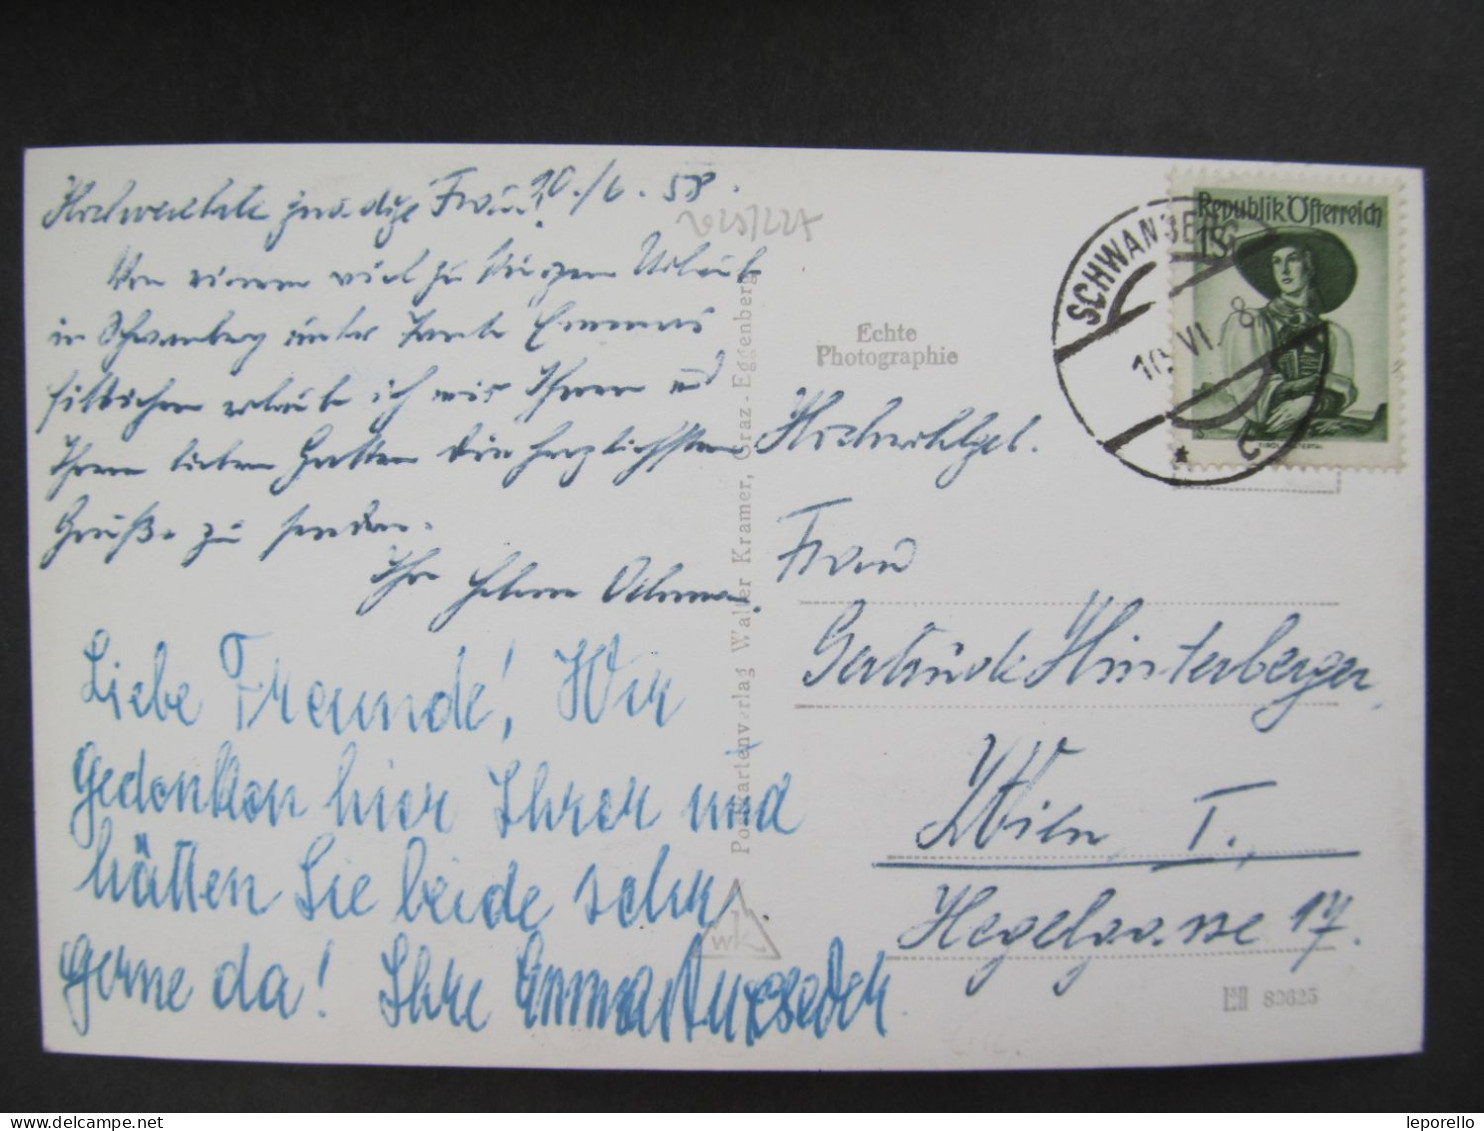 Hochverehrte gnädige Frau! 10./6. 58.
Von einem viel zu kurzen Urlaub
in Schwanberg unter Tante Emmas
Fittichen erlaube ich mir Ihnen und
Ihrem lieben Gatten die herzlichsten
Grüße zu senden.
Ihr
Liebe Freunde! Wir
gedenken hier Ihrer und
hätten Sie beide sehr
gerne da! Ihre Emma
Postkartenverlag Walter Kramer, Graz-Eggenberg
wk
Echte
Photographie
SCHWANBERG
10. VI. 58
Republik Österreich
1S
Hochwohlgeb.
Frau
Gertrude Hinterberger
Wien, I.
Hegelgasse 17.
80625
leporello